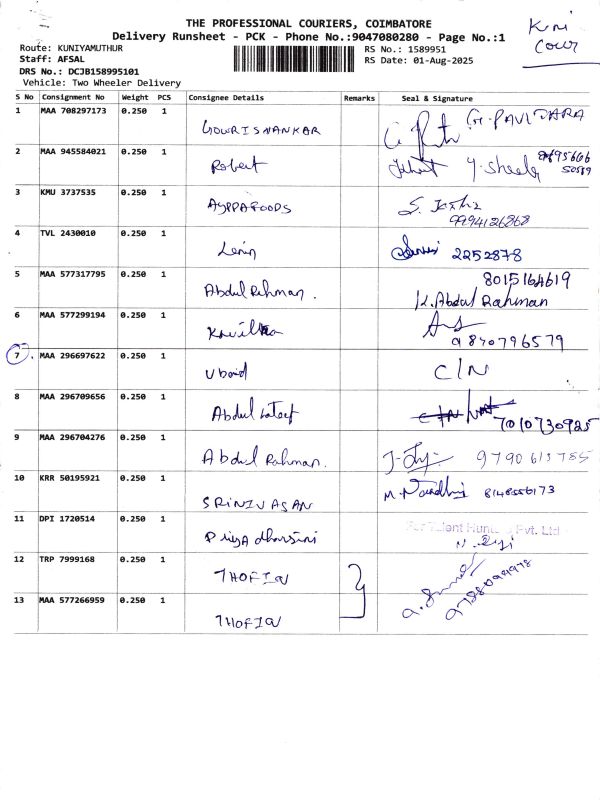 THE PROFESSIONAL COURIERS, COIMBATORE
Delivery Runsheet - PCK - Phone No.:9047080280 - Page No.:1
Route: KUNIYAMUTHUR
RS No.: 1589951
Staff: AFSAL
RS Date: 01-Aug-2025
DRS No.: DCJB158995101
Vehicle: Two Wheeler Delivery
S No Consignment No Weight PCS Consignee Details Remarks Seal & Signature
1 MAA 708297173 0.250 1 GOURISHANKAR
2 MAA 945584021 0.250 1 Robert
3 KMU 3737535 0.250 1 AYPPAFOODS 9994126868
4 TVL 2430010 0.250 1 Lenin 2252878
5 MAA 577317795 0.250 1 Abdul Rahman. 8015164619
K. Abdul Rahman
6 MAA 577299194 0.250 1 9840796579
7 MAA 296697622 0.250 1 Ubaid C/N
8 MAA 296709656 0.250 1 Abdul Lateef 7010730925
9 MAA 296704276 0.250 1 Abdul Rahman. 9790613785
10 KRR 50195921 0.250 1 SRINIVASAN 8148556173
11 DPI 1720514 0.250 1 Priya dharsini Pvt. Ltd
12 TRP 7999168 0.250 1 THOFIQ
13 MAA 577266959 0.250 1 THOFIQ